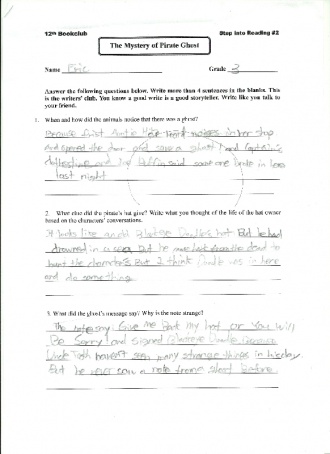 12th Bookclub Step into Reading #2
The Mystery of Pirate Ghost
Name Eric Grade 3
Answer the following questions below. Write more than 4 sentences in the blanks. This is the writers' club. You know a good write is a good storyteller. Write like you talk to your friend.
1. When and how did the animals notice that there was a ghost?
Because first Auntie heard noises in her shop
and opened the door and saw a ghost and Captain's
and Puffin said someone broke in
last night
2. What clue did the pirate's hat give? Write what you thought of the life of the hat owner
based on the characters' conversations.
It looks like an old pirate Doodle's hat But he had
drowned in a sea, But he came back from the dead to
haunt the characters But I think Doodle was in here
and do something
3. What did the ghost's message say? Why is the note strange?
The note say: Give me Back my hat or You will
Be Sorry! and signed Doodle Because
Uncle Tooth haven't seen many strange things in his day
But he never saw a note from ghost before